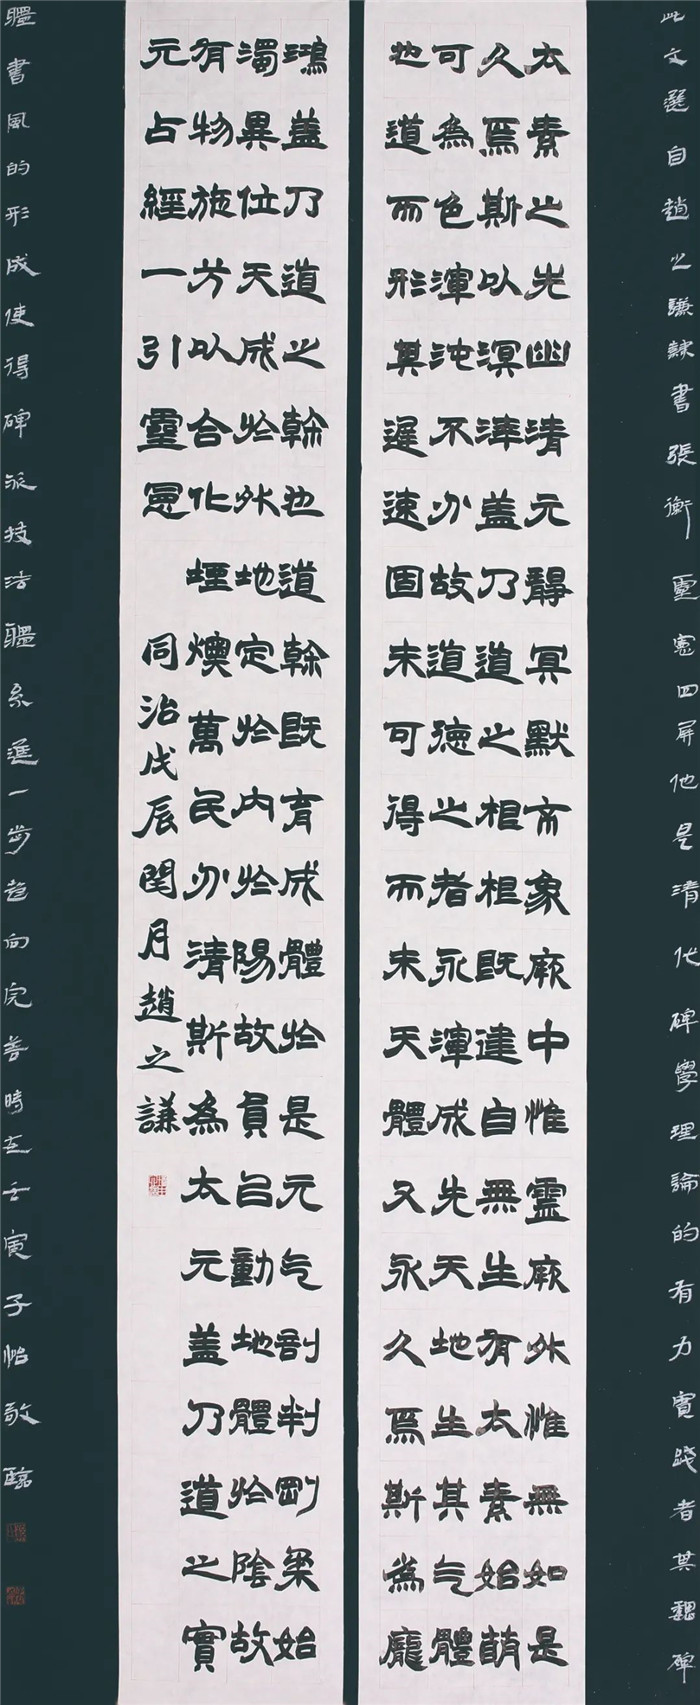 此文選自趙之謙隸書張衡靈憲四屏他是清代碑學理論的有力實踐者其魏碑
太素之先幽清元靜冥默亦象厥中惟靈厥外惟無如是
久焉斯以溟涬盖乃道之根根既建自無生有太素始萌
可為色渾沌不分故道德之者永渾成先天地生其气體
也道而形其遲速固未可得而未天體又永久焉斯為龐
鴻盖乃道之幹也道幹既育成體於是元气剖判剛柔始
濁異位天成於外地定於內於陽故員㠯動地體於陰故
有物施方以合化堙燠萬民分清斯為太元盖乃道之實
元占經一引靈憲
同治戊辰閏月趙之謙
體書風的形成使得碑派技法體系進一步趨向完善時在壬寅子怡敬臨